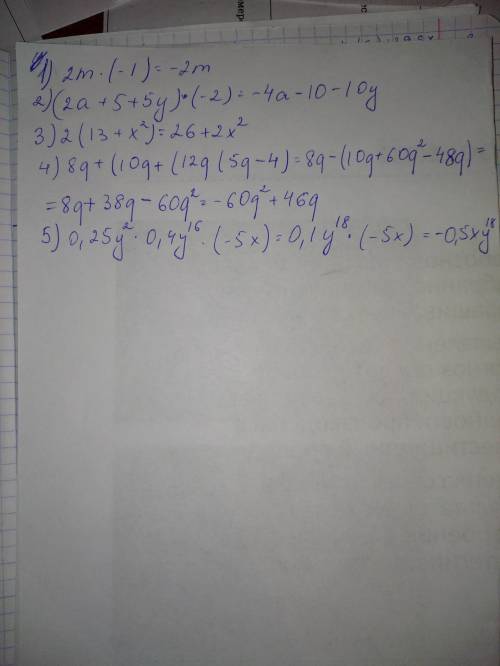 1) 2m · (-1) = -2m
2) (2a + 5 + 5y) · (-2) = -4a - 10 - 10y
3) 2 (13 + x²) = 26 + 2x²
4) 8q + (10q + (12q (5q - 4) = 8q - (10q + 60q² - 48q) =
= 8q + 38q - 60q² = -60q² + 46q
5) 0,25y² · 0,4y¹⁶ · (-5x) = 0,1y¹⁸ · (-5x) = -0,5xy¹⁸